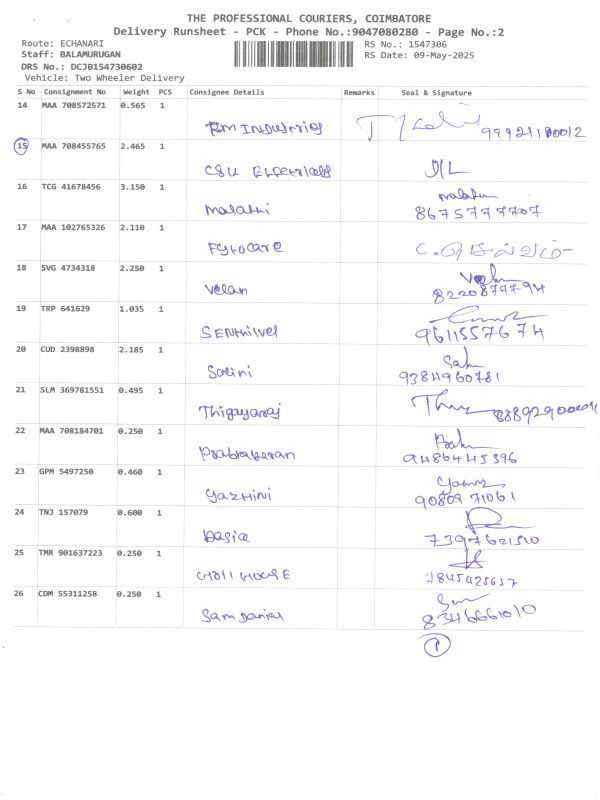 THE PROFESSIONAL COURIERS, COIMBATORE
Delivery Runsheet - PCK - Phone No.:9047080280 - Page No.:2
Route: ECHANARI RS No.: 1547306
Staff: BALAMURUGAN RS Date: 09-May-2025
DRS No.: DCJB154730602
Vehicle: Two Wheeler Delivery
S No Consignment No Weight PCS Consignee Details Remarks Seal & Signature
14 MAA 708572571 0.565 1
Industries
15 MAA 708455765 2.465 1
16 TCG 41678456 3.150 1
Malathi 8675777707
17 MAA 102765326 2.110 1
Fytocare
18 SVG 4734318 2.250 1
Velan 8220877794
19 TRP 641629 1.035 1
Senthilvel 9611557674
20 CUD 2398898 2.185 1
9384960781
21 SLM 369781551 0.495 1
Thigayaraj
22 MAA 708184701 0.250 1
Prabakaran 9486445396
23 GPM 5497250 0.460 1
Yazhini 9080971061
24 TNJ 157079 0.600 1
7397621510
25 TMR 901637223 0.250 1
26 CDM 55311258 0.250 1
Sam Daniel 8346661010